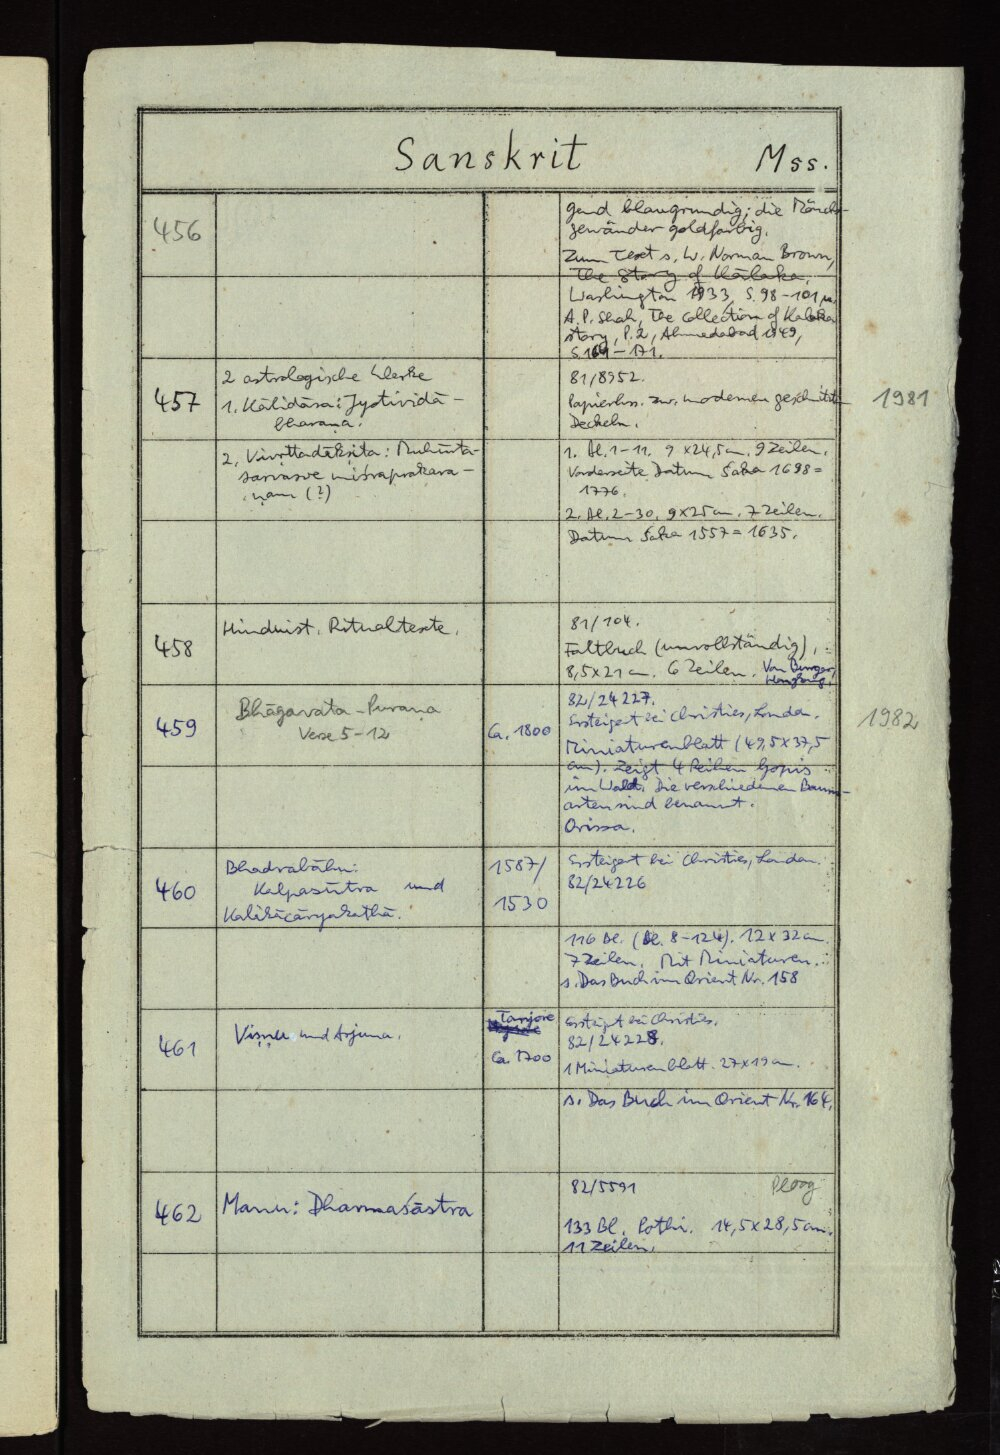 Sanskrit Mss.
456
gend blaugrundig; die Mönchs-
gewänder goldfarbig.
Zum Text s. W. Norman Brown,
The Story of Kālaka,
Washington 1933, S. 98-101, u.
A. P. Shah, The Collection of Kalaka
story, P. 2, Ahmedabad 1949,
S. 169-171.
457
2 astrologische Werke
1. Kālidāsa: Jyotividā-
bharaṇa.
2. Vivṛttadīkṣita: Muhūrta-
sarvasve miśraprakara-
ṇam (?)
81/8952.
Papierhss. zw. modernen geschnitzt.
Deckeln.
1. Bl. 1-11. 9 x 24,5 cm. 9 Zeilen.
Vorderseite Datum Śaka 1698 =
1776.
2. Bl. 2-30. 9 x 25 cm. 7 Zeilen.
Datum Śaka 1557 = 1635.
1981
458
Hinduist. Ritualtexte.
81/104.
Faltbuch (unvollständig),
8,5 x 21 cm. 6 Zeilen. Von Burger,
459
Bhāgavata-Purāṇa
Verse 5-12
Ca. 1800
82/24227.
Ersteigert bei Christies, London.
Miniaturenblatt (49,5 x 37,5
cm). Zeigt 4 Reihen Gopis
im Wald. Die verschiedenen Baum-
arten sind benannt.
Orissa.
1982
460
Bhadrabāhu:
Kalpasūtra und
Kālikācāryakathā.
1587/
1530
Ersteigert bei Christies, London.
82/24226
116 Bl. (Bl. 8-124). 12 x 32 cm.
7 Zeilen. Mit Miniaturen.
s. Das Buch im Orient Nr. 158
461
Viṣṇu und Arjuna.
Tanjore
Ca. 1700
Ersteigert bei Christies.
82/24228.
1 Miniaturenblatt. 27 x 19 cm.
s. Das Buch im Orient Nr. 164.
462
Manu: Dharmaśāstra
82/5591 Ploog
133 Bl. Pothi. 14,5 x 28,5 cm.
11 Zeilen.